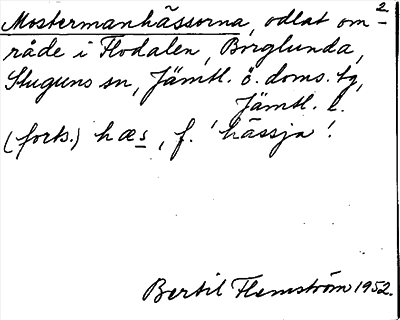 2
Mostermanhässorna, odlat om-
råde i Flodalen, Borglunda,
Stuguns sn, Jämtl. ö. doms. tg,
Jämtl. l.
(forts.) hæs, f. 'hässja'.
Bertil Flemström 1952.